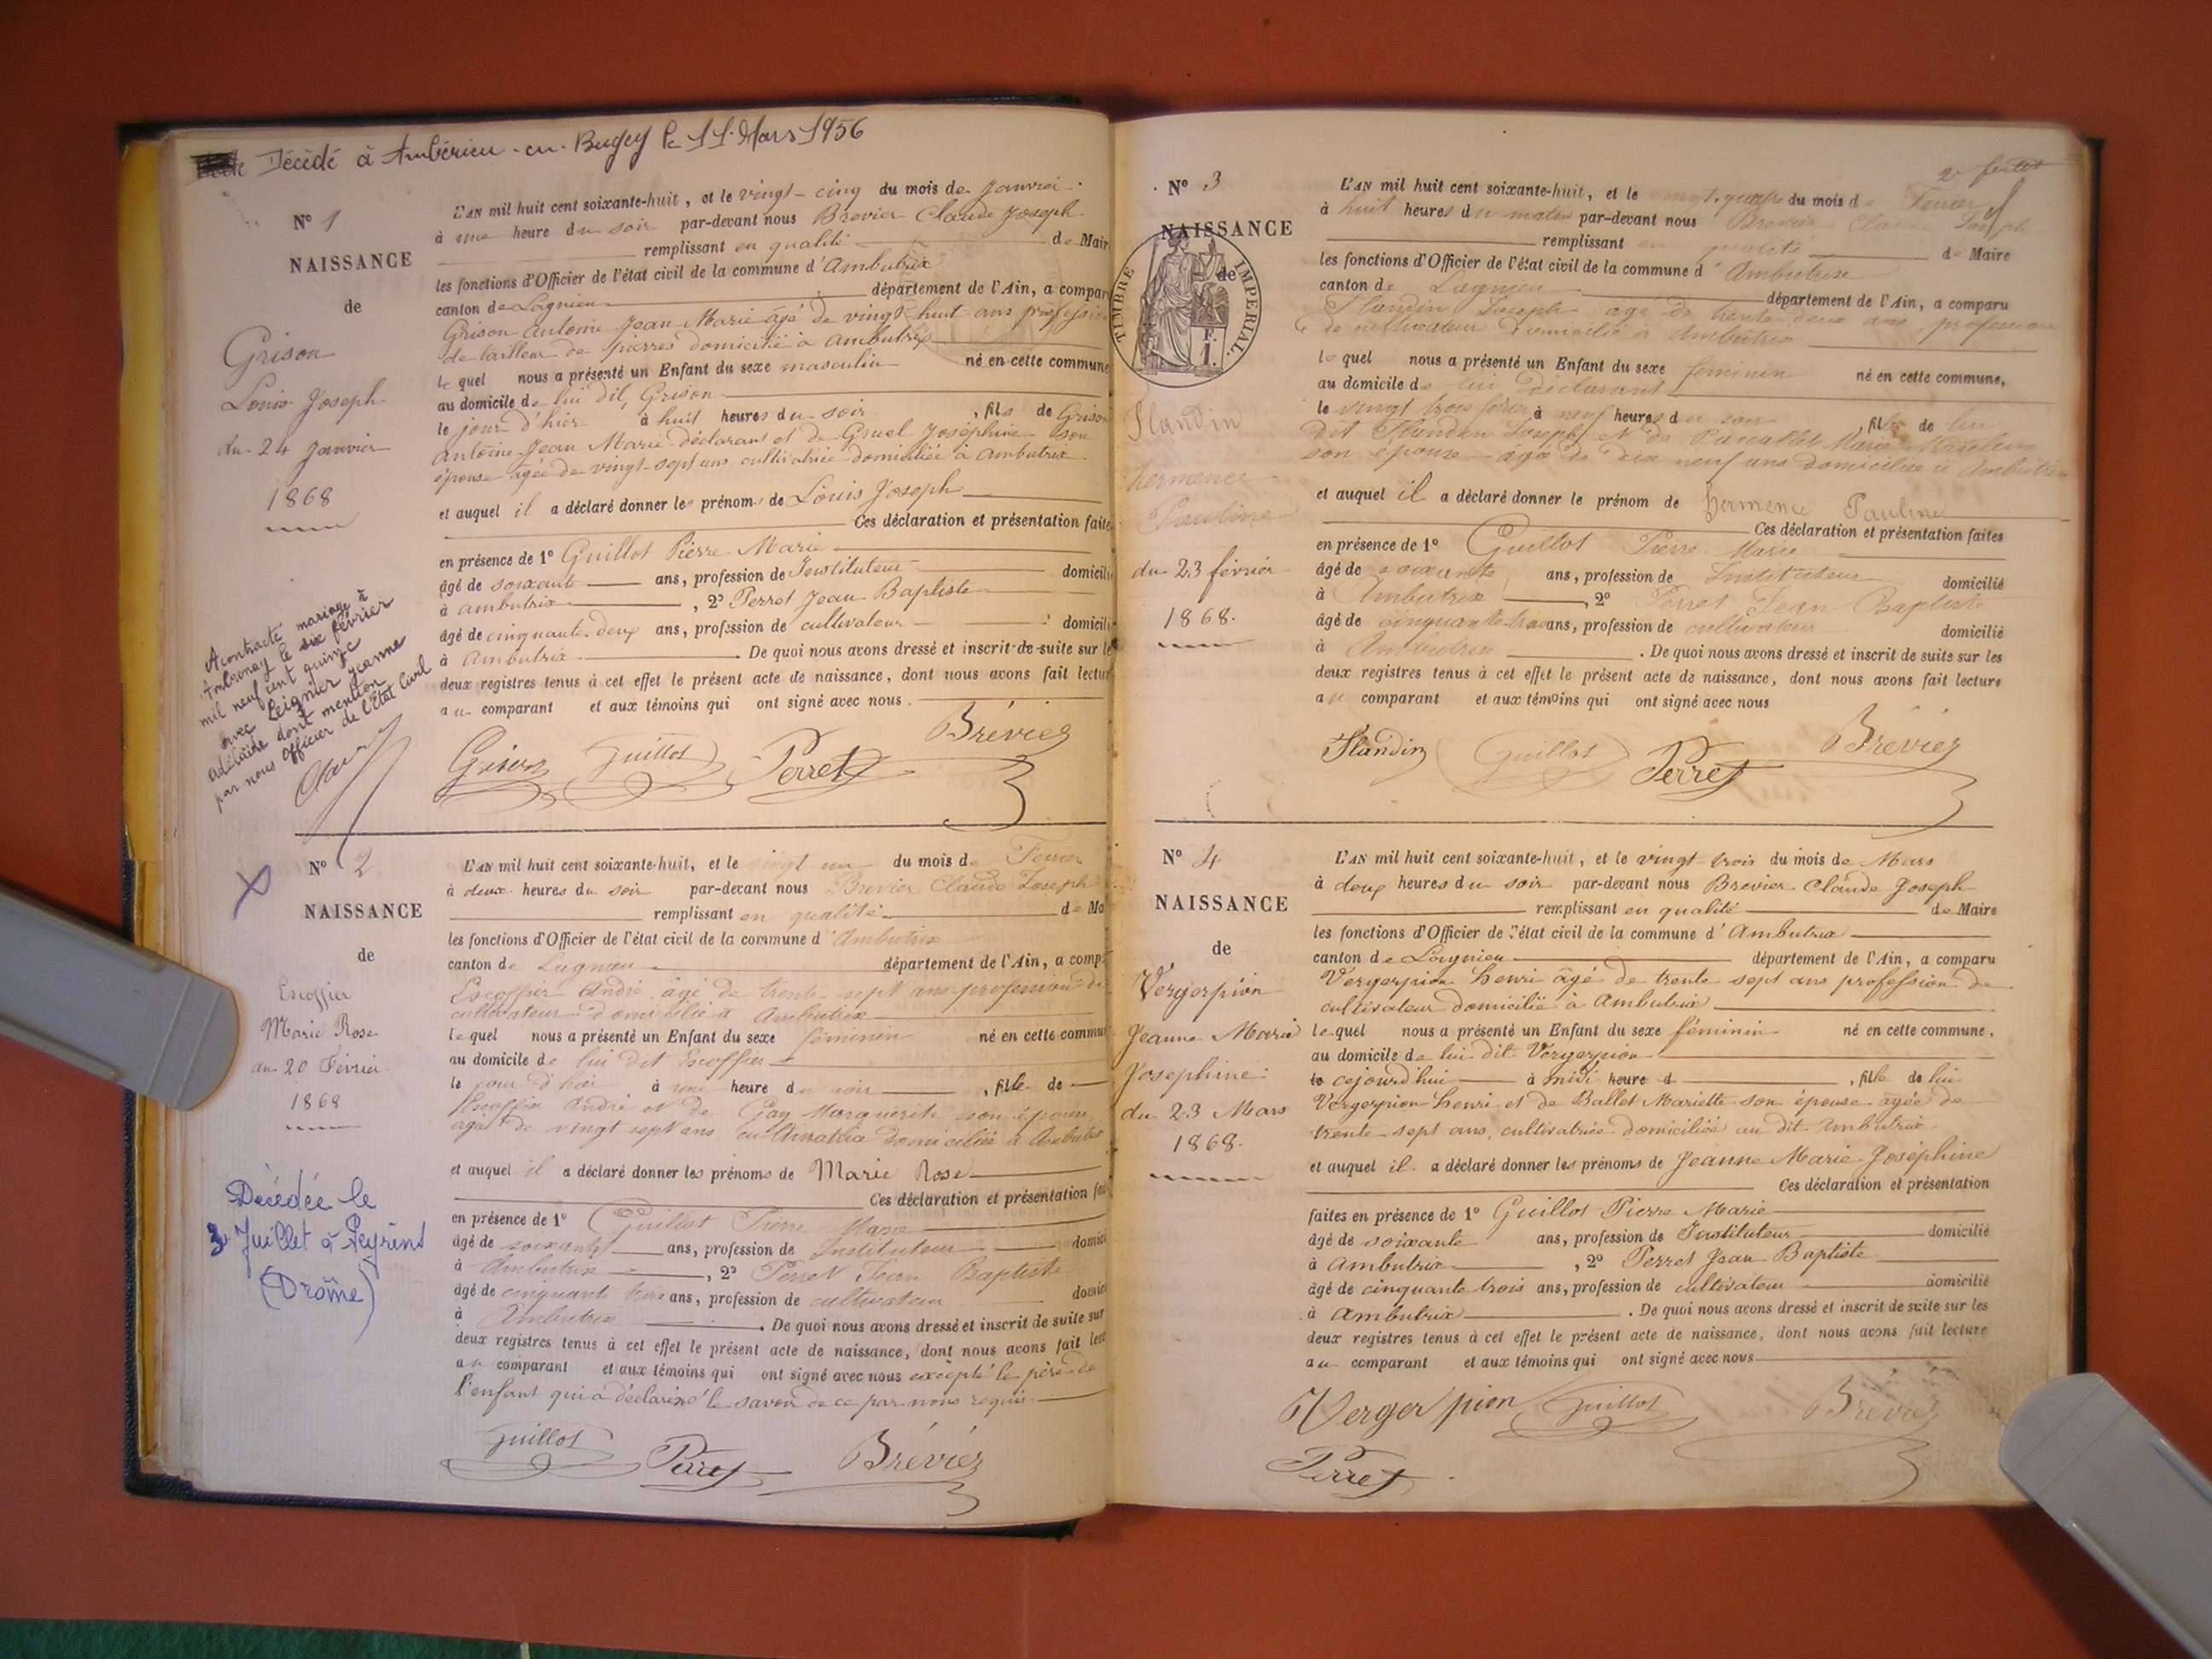 Décédé à Ambérieu-en-Bugey le 11 Mars 1956
N° 1
NAISSANCE
de
Grison
Louis Joseph
du 24 Janvier
1868
A contracté mariage à
Ambronay le six février
mil neuf cent quinze
avec Leignier Jeanne
Adélaïde dont mention
par nous officier de l'Etat Civil
L'AN mil huit cent soixante-huit, et le vingt-cinq du mois de Janvier
à une heure du soir par-devant nous Brevier Claude Joseph
remplissant en qualité de Mair
les fonctions d'Officier de l'état civil de la commune d'Ambutrix
canton de Lagnieu département de l'Ain, a compar
Grison Antoine Jean Marie âgé de vingt-huit ans profession
de tailleur de pierres domicilié à Ambutrix
lequel nous a présenté un Enfant du sexe masculin né en cette commune
au domicile de lui dit Grison
le jour d'hier à huit heures du soir, fils de Grison
Antoine Jean Marie déclarant et de Gruel Joséphine son
épouse âgée de vingt-sept ans cultivatrice domiciliée à Ambutrix
et auquel il a déclaré donner les prénoms de Louis Joseph
Ces déclaration et présentation faite
en présence de 1° Guillot Pierre Marie
âgé de soixante ans, profession de Instituteur domicili
à Ambutrix, 2° Perret Jean Baptiste
âgé de cinquante-deux ans, profession de cultivateur domicili
à Ambutrix. De quoi nous avons dressé et inscrit de suite sur le
deux registres tenus à cet effet le présent acte de naissance, dont nous avons fait lectur
au comparant et aux témoins qui ont signé avec nous.
Grison Guillot Perret Bréviez
N° 2
NAISSANCE
de
Escoffier
Marie Rose
du 20 Février
1868
Décédée le
Juillet à Peyrins
(Drôme)
L'AN mil huit cent soixante-huit, et le vingt-un du mois de Fevrier
à deux heures du soir par-devant nous Brevier Claude Joseph
remplissant en qualité de Ma
les fonctions d'Officier de l'état civil de la commune d'Ambutrix
canton de Lagnieu département de l'Ain, a comp
Escoffier André âgé de trente-sept ans profession de
cultivateur domicilié à Ambutrix
lequel nous a présenté un Enfant du sexe féminin né en cette commu
au domicile de lui dit Escoffier
le jour d'hier à une heure du soir, fille de
Escoffier André et de Gay Marguerite son épouse
agée de vingt sept ans cultivatrice domiciliée à Ambutrix
et auquel il a déclaré donner les prénoms de Marie Rose
Ces déclaration et présentation fai
en présence de 1° Guillot Pierre Marie
âgé de soixante ans, profession de Instituteur domici
à Ambutrix, 2° Perret Jean Baptiste
âgé de cinquante trois ans, profession de cultivateur domici
à Ambutrix. De quoi nous avons dressé et inscrit de suite sur
deux registres tenus à cet effet le présent acte de naissance, dont nous avons fait lect
au comparant et aux témoins qui ont signé avec nous excepté le père de
l'enfant qui a déclaré ne le savoir de ce par nous requis.
Guillot Perret Bréviez
2e feuillet
N° 3
NAISSANCE
de
TIMBRE IMPERIAL.
Flandin
hermence
Pauline
du 23 février
1868.
L'AN mil huit cent soixante-huit, et le vingt-quatre du mois de Fevrier
à huit heures du matin par-devant nous Brevier Claude Joseph
remplissant en qualité de Maire
les fonctions d'Officier de l'état civil de la commune d'Ambutrix
canton de Lagnieu département de l'Ain, a comparu
Flandin Joseph agé de trente deux ans, profession
de cultivateur domicilié à Ambutrix
lequel nous a présenté un Enfant du sexe féminin né en cette commune,
au domicile de lui déclarant
le vingt trois février à neuf heures du soir fille de lui
dit Flandin Joseph et de Marie Madeleine
son épouse agée de dix neuf ans domiciliée à Ambutrix
et auquel il a déclaré donner le prénom de hermence Pauline
Ces déclaration et présentation faites
en présence de 1° Guillot Pierre Marie
âgé de soixante ans, profession de Instituteur domicilié
à Ambutrix, 2° Perret Jean Baptiste
âgé de cinquante trois ans, profession de cultivateur domicilié
à Ambutrix. De quoi nous avons dressé et inscrit de suite sur les
deux registres tenus à cet effet le présent acte de naissance, dont nous avons fait lecture
au comparant et aux témoins qui ont signé avec nous
Flandin Guillot Perret Bréviez
N° 4
NAISSANCE
de
Vergerpion
Jeanne Marie
Josephine
du 23 Mars
1868.
L'AN mil huit cent soixante-huit, et le vingt-trois du mois de Mars
à deux heures du soir par-devant nous Brevier Claude Joseph
remplissant en qualité de Maire
les fonctions d'Officier de l'état civil de la commune d'Ambutrix
canton de Lagnieu département de l'Ain, a comparu
Vergerpion henri âgé de trente sept ans profession de
cultivateur domicilié à Ambutrix
lequel nous a présenté un Enfant du sexe féminin né en cette commune,
au domicile de lui dit Vergerpion
le cejourd'hui à midi heure d, fille de lui
Vergerpion henri et de Ballet Mariette son épouse âgée de
trente-sept ans, cultivatrice domiciliée au dit Ambutrix
et auquel il a déclaré donner les prénoms de Jeanne Marie Joséphine
Ces déclaration et présentation
faites en présence de 1° Guillot Pierre Marie
âgé de soixante ans, profession de Instituteur domicilié
à Ambutrix, 2° Perret Jean Baptiste
âgé de cinquante trois ans, profession de cultivateur domicilié
à Ambutrix. De quoi nous avons dressé et inscrit de suite sur les
deux registres tenus à cet effet le présent acte de naissance, dont nous avons fait lecture
au comparant et aux témoins qui ont signé avec nous
Vergerpion Guillot Bréviez
Perret